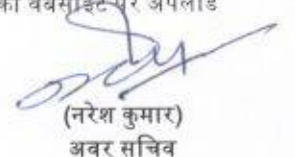 की वेबसाईट पर अपलोड
(नरेश कुमार)
अवर सचिव